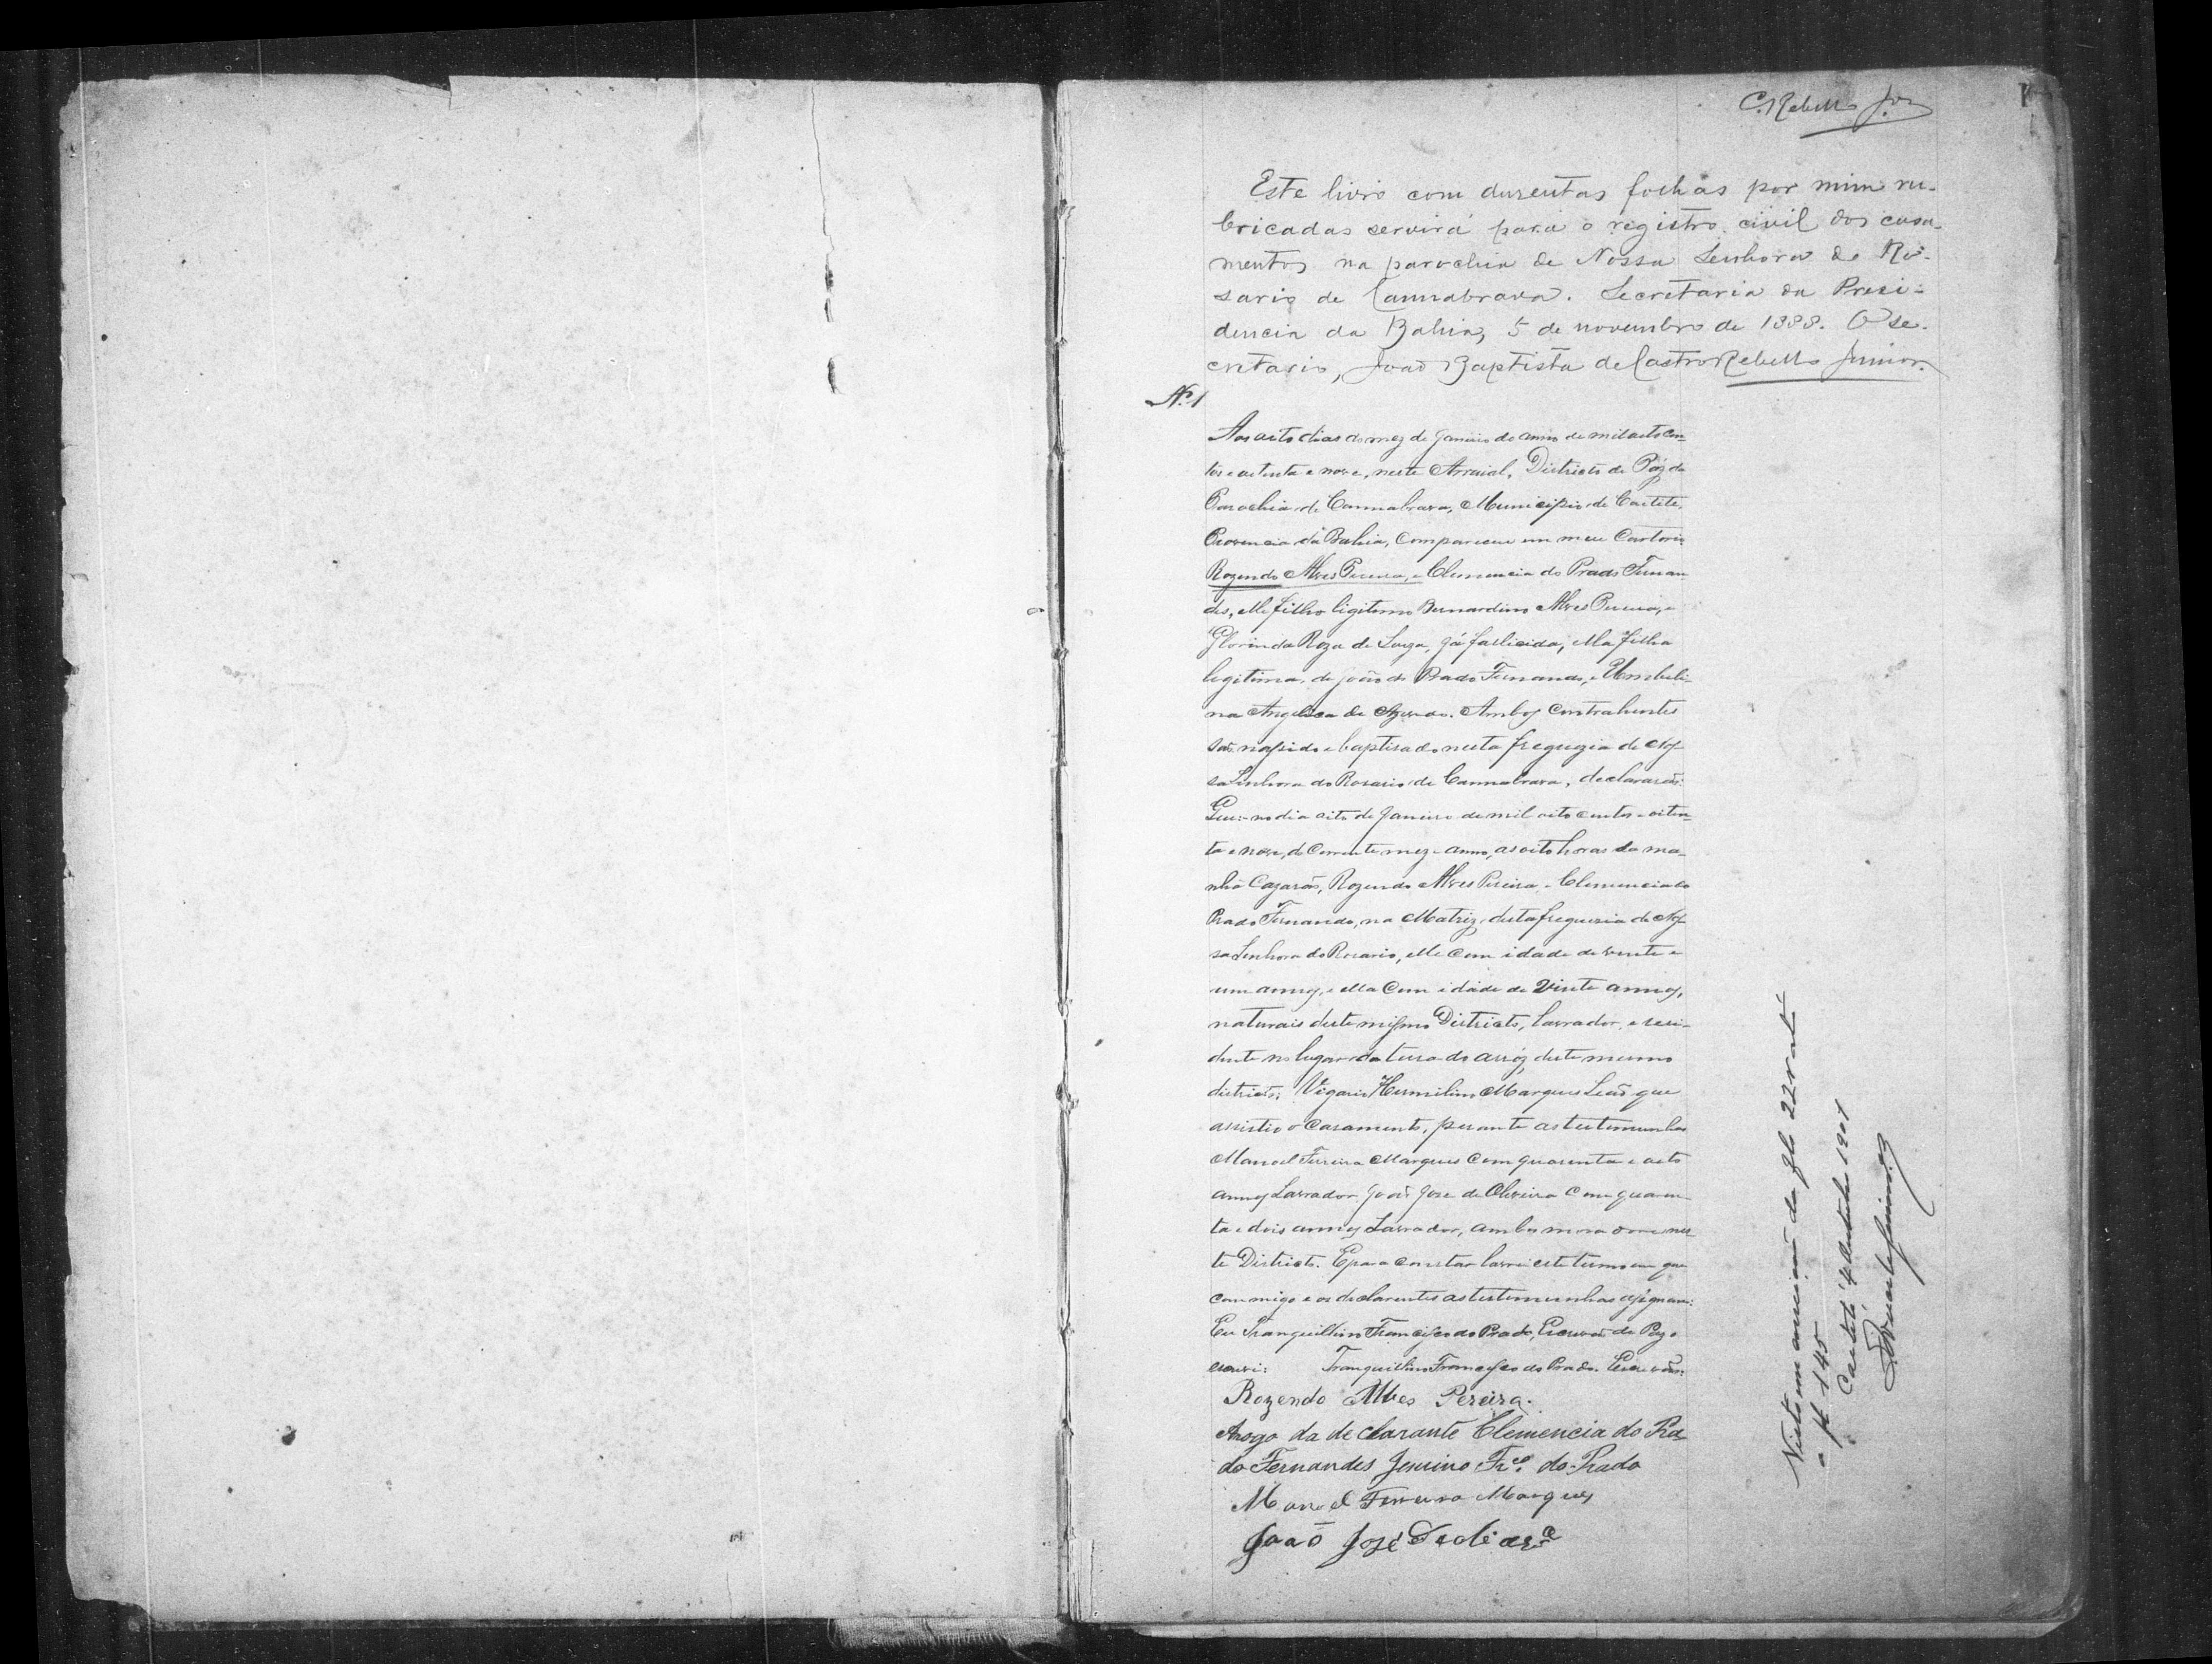 C. Rebello Jor
1
Este livro com duzentas folhas por mim ru-
bricadas servirá para o registro civil dos casa-
mentos na parochia de Nossa Senhora do Ro-
sario de Cannabrava. Secretaria da Presi-
dencia da Bahia, 5 de novembro de 1888. O se-
cretario, João Baptista de Castro Rebello Junior.
N.º 1
Aos oito dias do mez de Janeiro do anno de mil oito cen-
tos e oitenta e nove, neste Arraial, Districto de Páz da
Parochia de Cannabrava, Municipio de Caiteté,
Provencia da Bahia, Compareceu em meu Cartorio
Rozendo Alves Pereira, e Clemencia do Prado Fernan
des, elle filho ligitimo Bernardino Alves Pereira, e
Florinda Roza de Souza, já fallicida, ella filha
legitima, de João do Prado Fernando, e Umbeli-
na Angelica de Azevedo. Ambos Contrahentes
são nascido e baptisado nesta freguzia de Nos-
sa Senhora do Rosario de Cannabrava, declararão:
Que:- no dia oito de Janeiro de mil oito centos e oiten-
ta e nove, do Corrente mez e anno, as oito horas da ma-
nhã Cazarão, Rozendo Alves Pereira, e Clemencia do
Prado Fernando, na Matriz, desta freguezia de Nos-
sa Senhora do Rosario, elle Com idade de vinte e
um annos, e ella Com idade de Vinte annos,
naturais deste mesmo Districto, lavrador, e resi-
dente no lugar da terra do arróz, deste mesmo
districto; Vigario Hermilino Marques Leão que
assistio o Casamento, perante as testemunhas
Manoel Ferreira Marques Com quarenta e oito
annos Lavrador, João Jose de Oliveira Com quaren-
ta e dois annos Lavrador, ambos moradores nes-
te Districto. E para constar lavrei este termo em que
commigo e os declarentes as testemunhas assignam:
Eu Tranquillino Francisco do Prado, Escrivão de Paz o
escrevi: Tranquillino Francisco do Prado. Escrivão:
Rozendo Alves Pereira.
Arogo da declarante Clemencia do Pra-
do Fernandes Jenuino Frco. do Prado
Manoel Ferreira Marques
João José
Visto em correição de fls 22 v até
a fl 145
Caiteté 4 1901